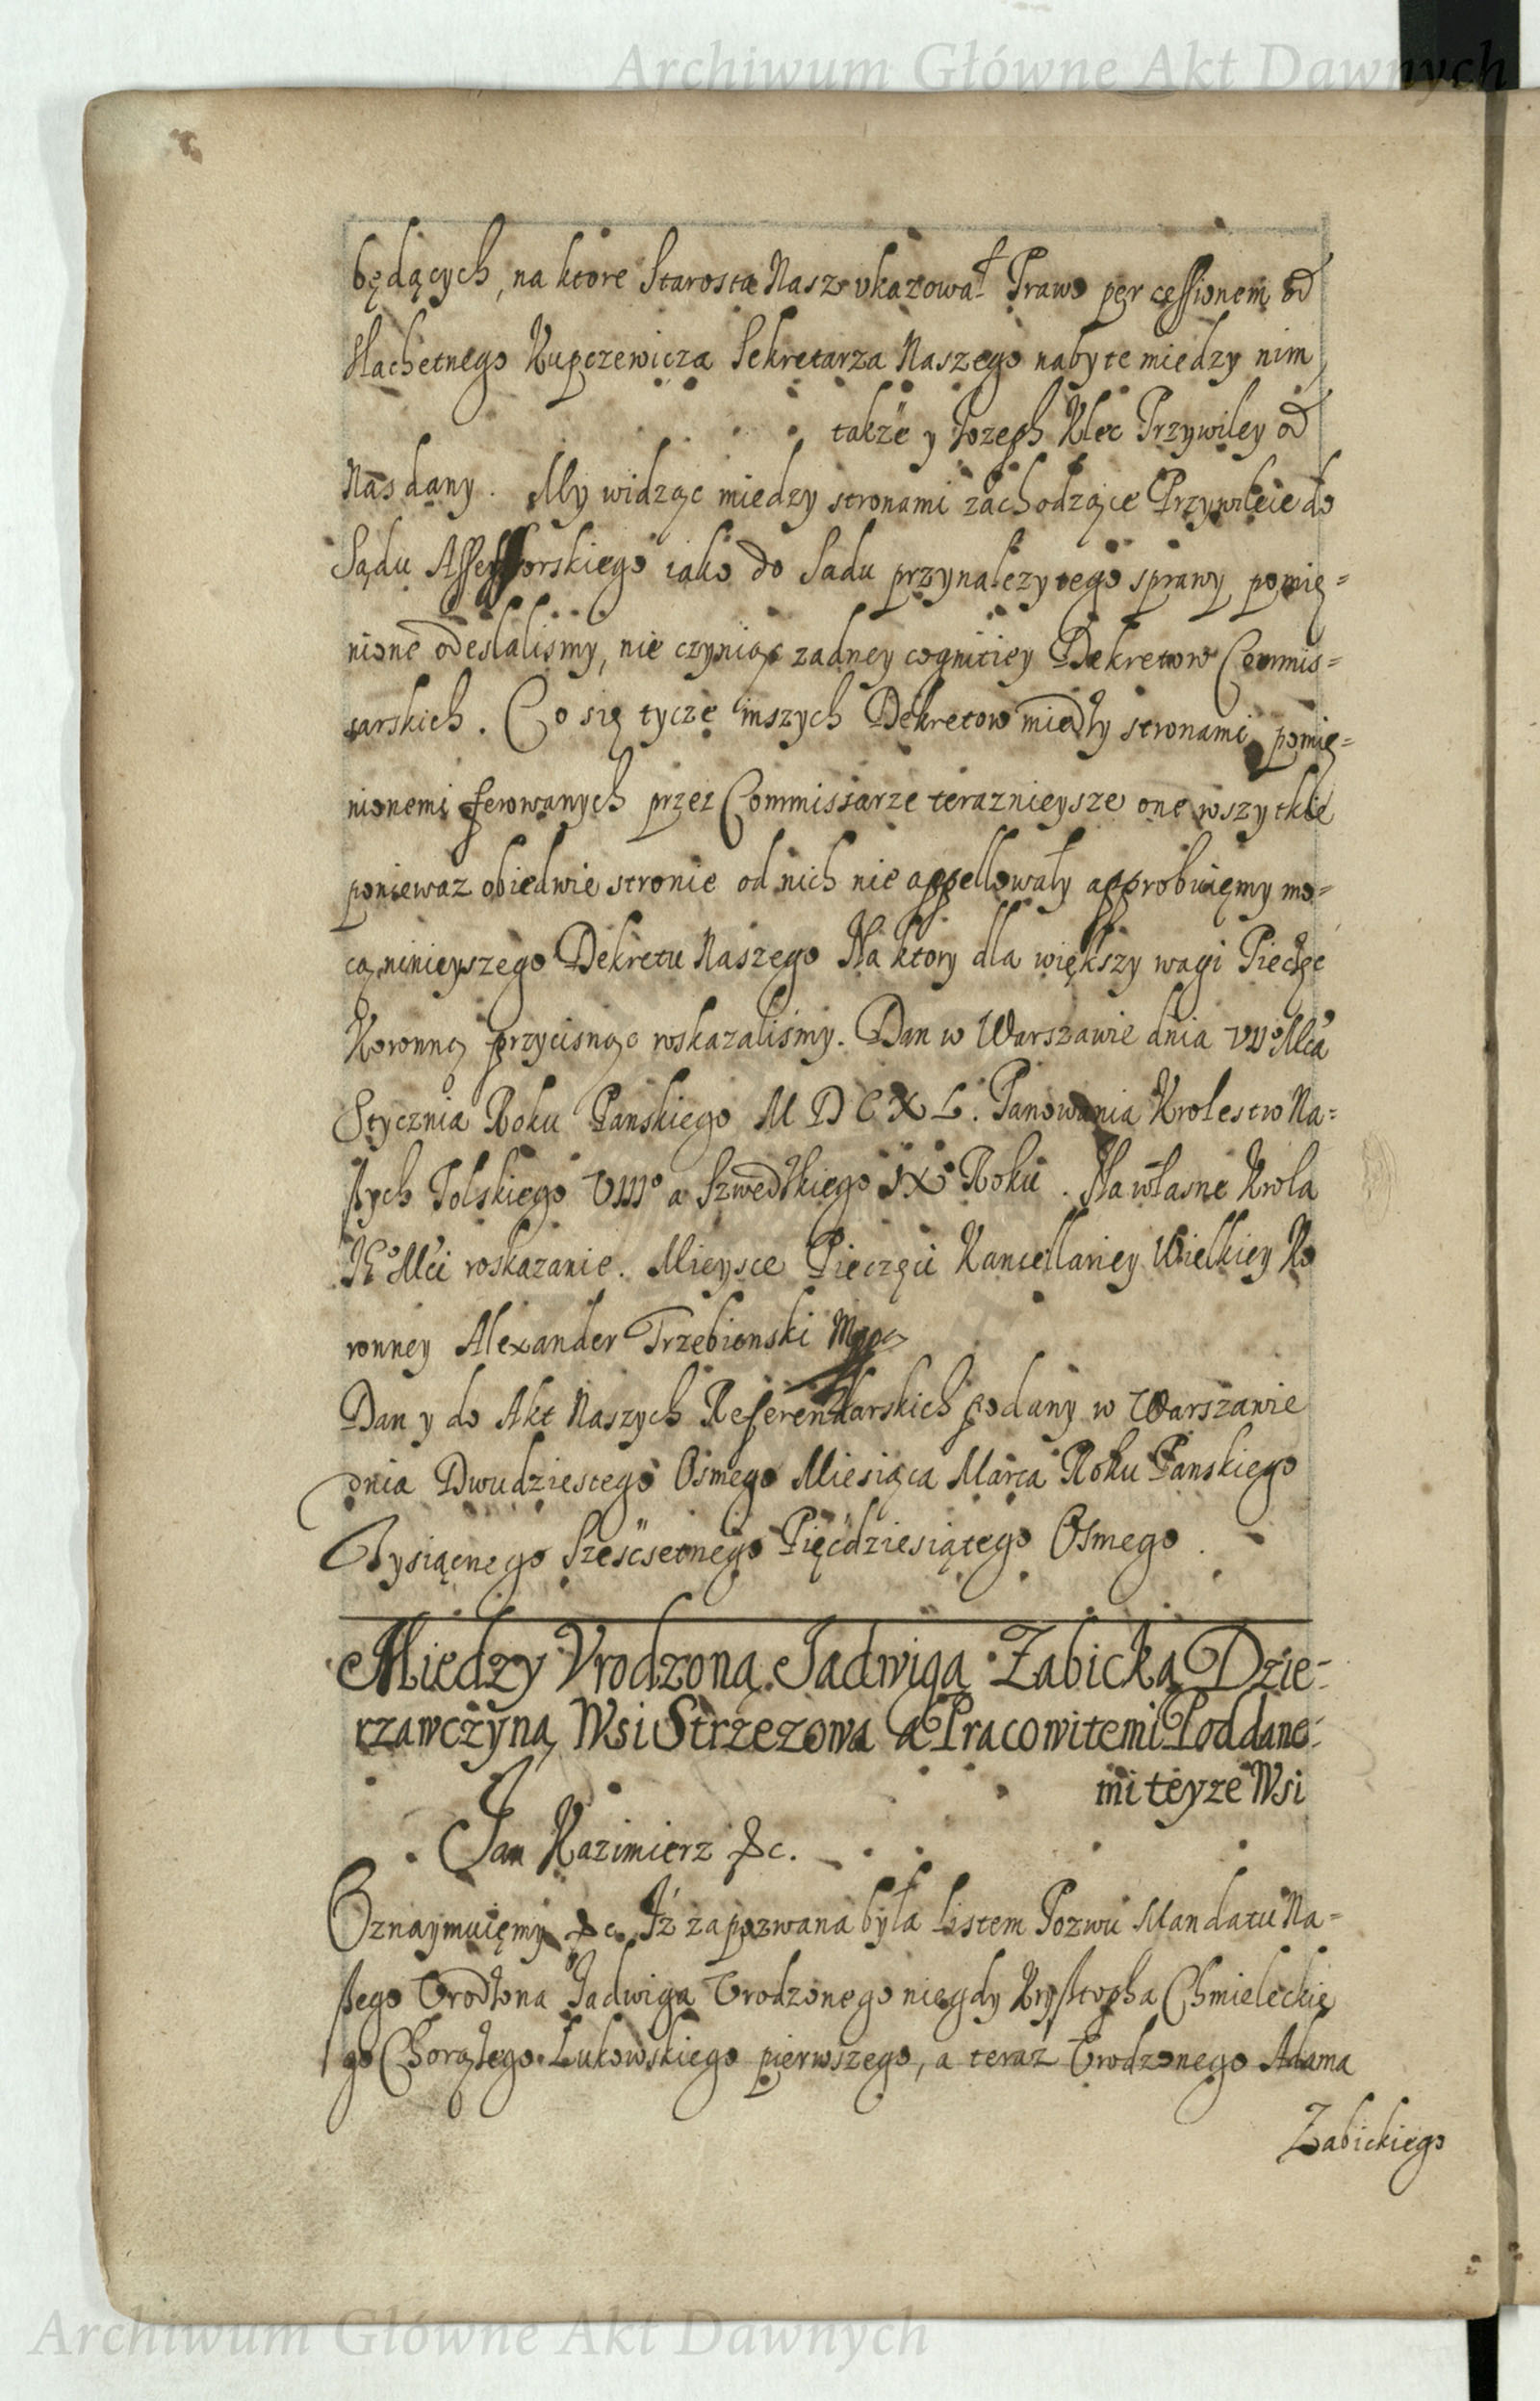 Archiwum Główne Akt Dawnych
będących, na ktore Starosta Nasz vkazował Prawo per cessionem od
slachetnego Kupczewicza Sekretarza Naszego nabyte miedzy nim
także y Jozeph Klec Przywiley od
Nas dany. My widząc miedzy stronami zachodzące Przywileie do
Sądu Assessorskiego iako do Sadu przynalezytego sprawy pomię=
nione odeslalismy, nie czyniąc zadney cognitiey Dekretow Commis=
sarskich. Co się tycze inszych Dekretow miedzy stronami pomię=
nionemi ferowanych przez Commissarze teraznieysze one wszytkie
poniewaz obiedwie stronie od nich nie appellowały approbuięmy mo=
cą ninieyszego Dekretu Naszego Na ktory dla większy wagi Pieczęc
Koronną przycisnąc roskazaliśmy. Dan w Warszawie dnia VII° Mca
Stycznia Roku Panskiego MDCXL. Panowania Krolestw Na=
szych Polskiego VIII° a Szwedzkiego IX° Roku. Na własne Krola
JE° Mci roskazanie. Mieysce Pieczęci Kancellariey Wielkiey Ko
ronney Alexander Trzebienski Mpp
Dan y do Akt Naszych Referendarskich podany w Warszawie
dnia Dwudziestego Osmego Miesiąca Marca Roku Panskiego
Tysiącnego Sześcsetnego Pięćdziesiątego Osmego.
Miedzy Vrodzoną Jadwigą Zabicką Dzie=
rzawczyną Wsi Strzezowa a Pracowitemi Poddane=
mi teyze Wsi
Jan Kazimierz &c.
Oznaymuięmy &c. Iż zapozwana była Listem Pozwu Mandatu Na=
szego Vrodzona Jadwiga Vrodzonego niegdy Krysztopha Chmieleckie
go Chorążego Łukowskiego pierwszego, a teraz Vrodzonego Adama
Zabickiego
Archiwum Główne Akt Dawnych